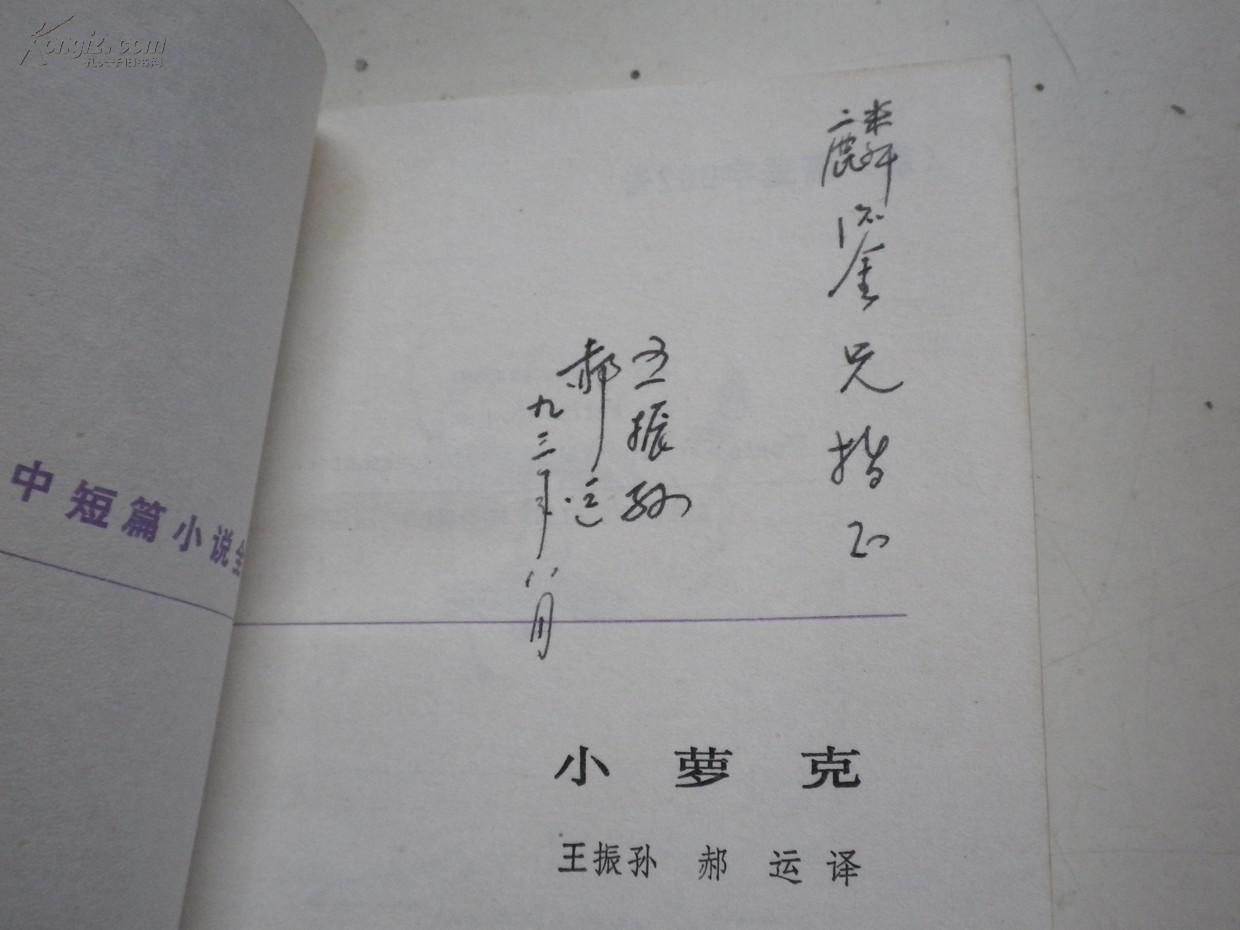 Kongfz.com
孔夫子旧书网
麟鎏兄指正
王振孙
郝运
九三年八月
中短篇小说
小萝克
王振孙 郝 运 译